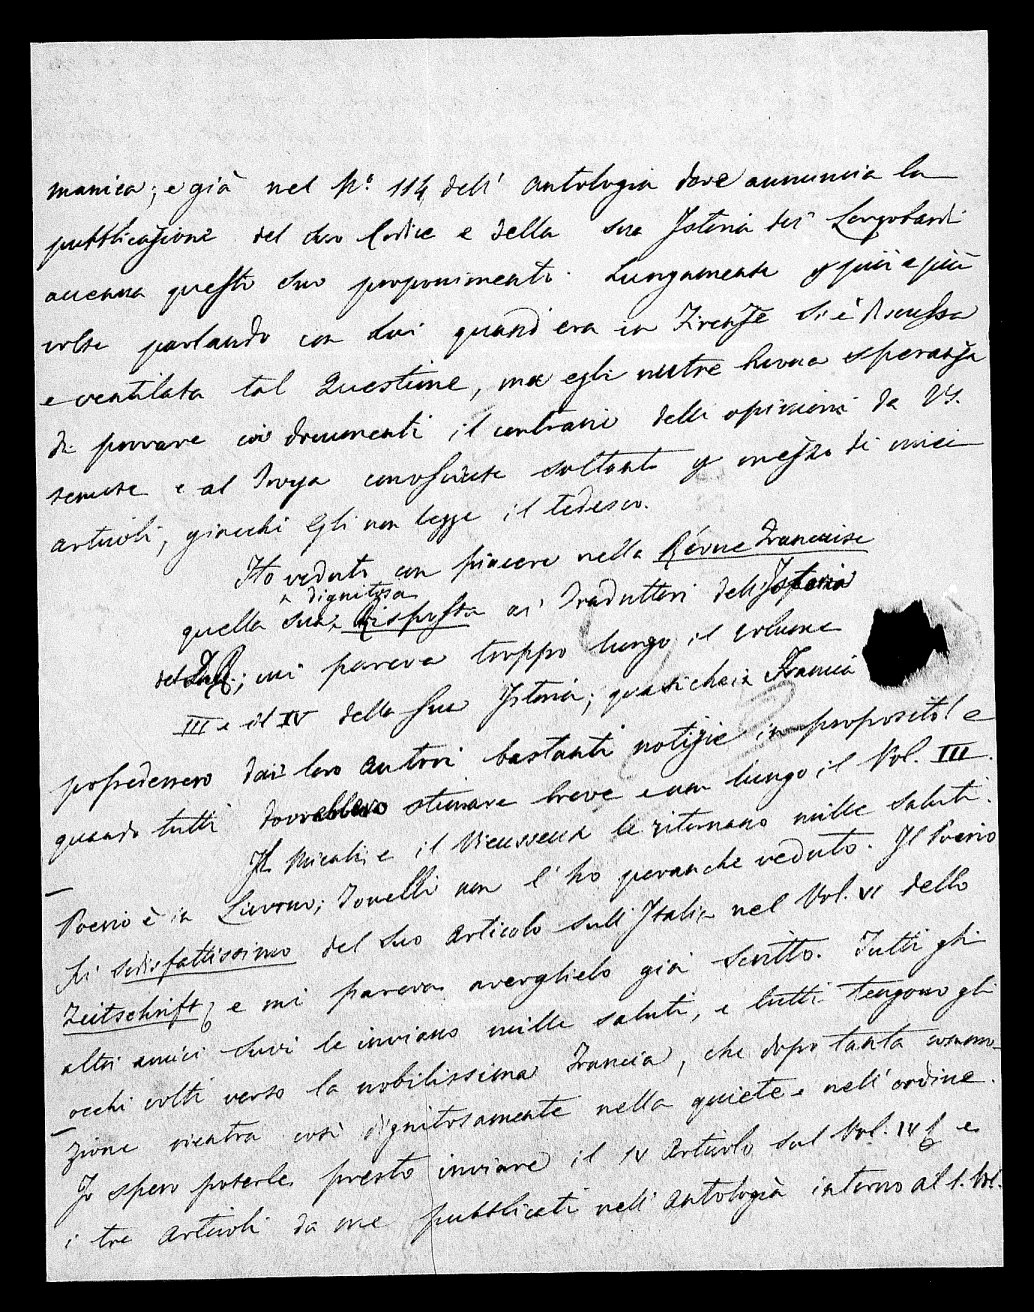 manica; e già nel N.º 114 dell' Antologia dove annuncia la
pubblicazione del suo Codice e della sua Istoria dei Longobardi
accenna questi suoi proponimenti. Lungamente e più e più
volte parlando con lui quand'era in Firenze si è discussa
e ventilata tal Questione, ma egli nutre buona speranza
di provare coi documenti il contrario delle opinioni da VS.
tenute e al Troya conosciute soltanto per mezzo di miei
articoli, giacchè Egli non legge il tedesco.
Ho veduto con piacere nella Revue Francaise
dignitosa
quella sua Risposta ai Traduttori dell'Istoria
del; mi pareva troppo lungo il volume
III e il IV della sua Istoria; quasichè in Francia
possedessero dai loro autori bastanti notizie in proposito! e
quando tutti dovrebbero stimare breve e non lungo il Vol. III.
Il Micali e il Vieusseux le ritornano mille saluti.
Poerio è in Livorno; Tonelli non l'ho peranche veduto. Il Poerio
fu sodisfattissimo del suo Articolo sull'Italia nel Vol. VI dello
Zeitschrift, e mi pareva averglielo già scritto. Tutti gli
altri amici suoi le inviano mille saluti, e tutti tengono gli
occhi volti verso la nobilissima Francia, che dopo tanta commo-
zione rientra così dignitosamente nella quiete e nell'ordine.
Io spero poterle presto inviare il IV Articolo sul Vol. IV, e
i tre Articoli da me pubblicati nell'Antologia intorno al 1. Vol.